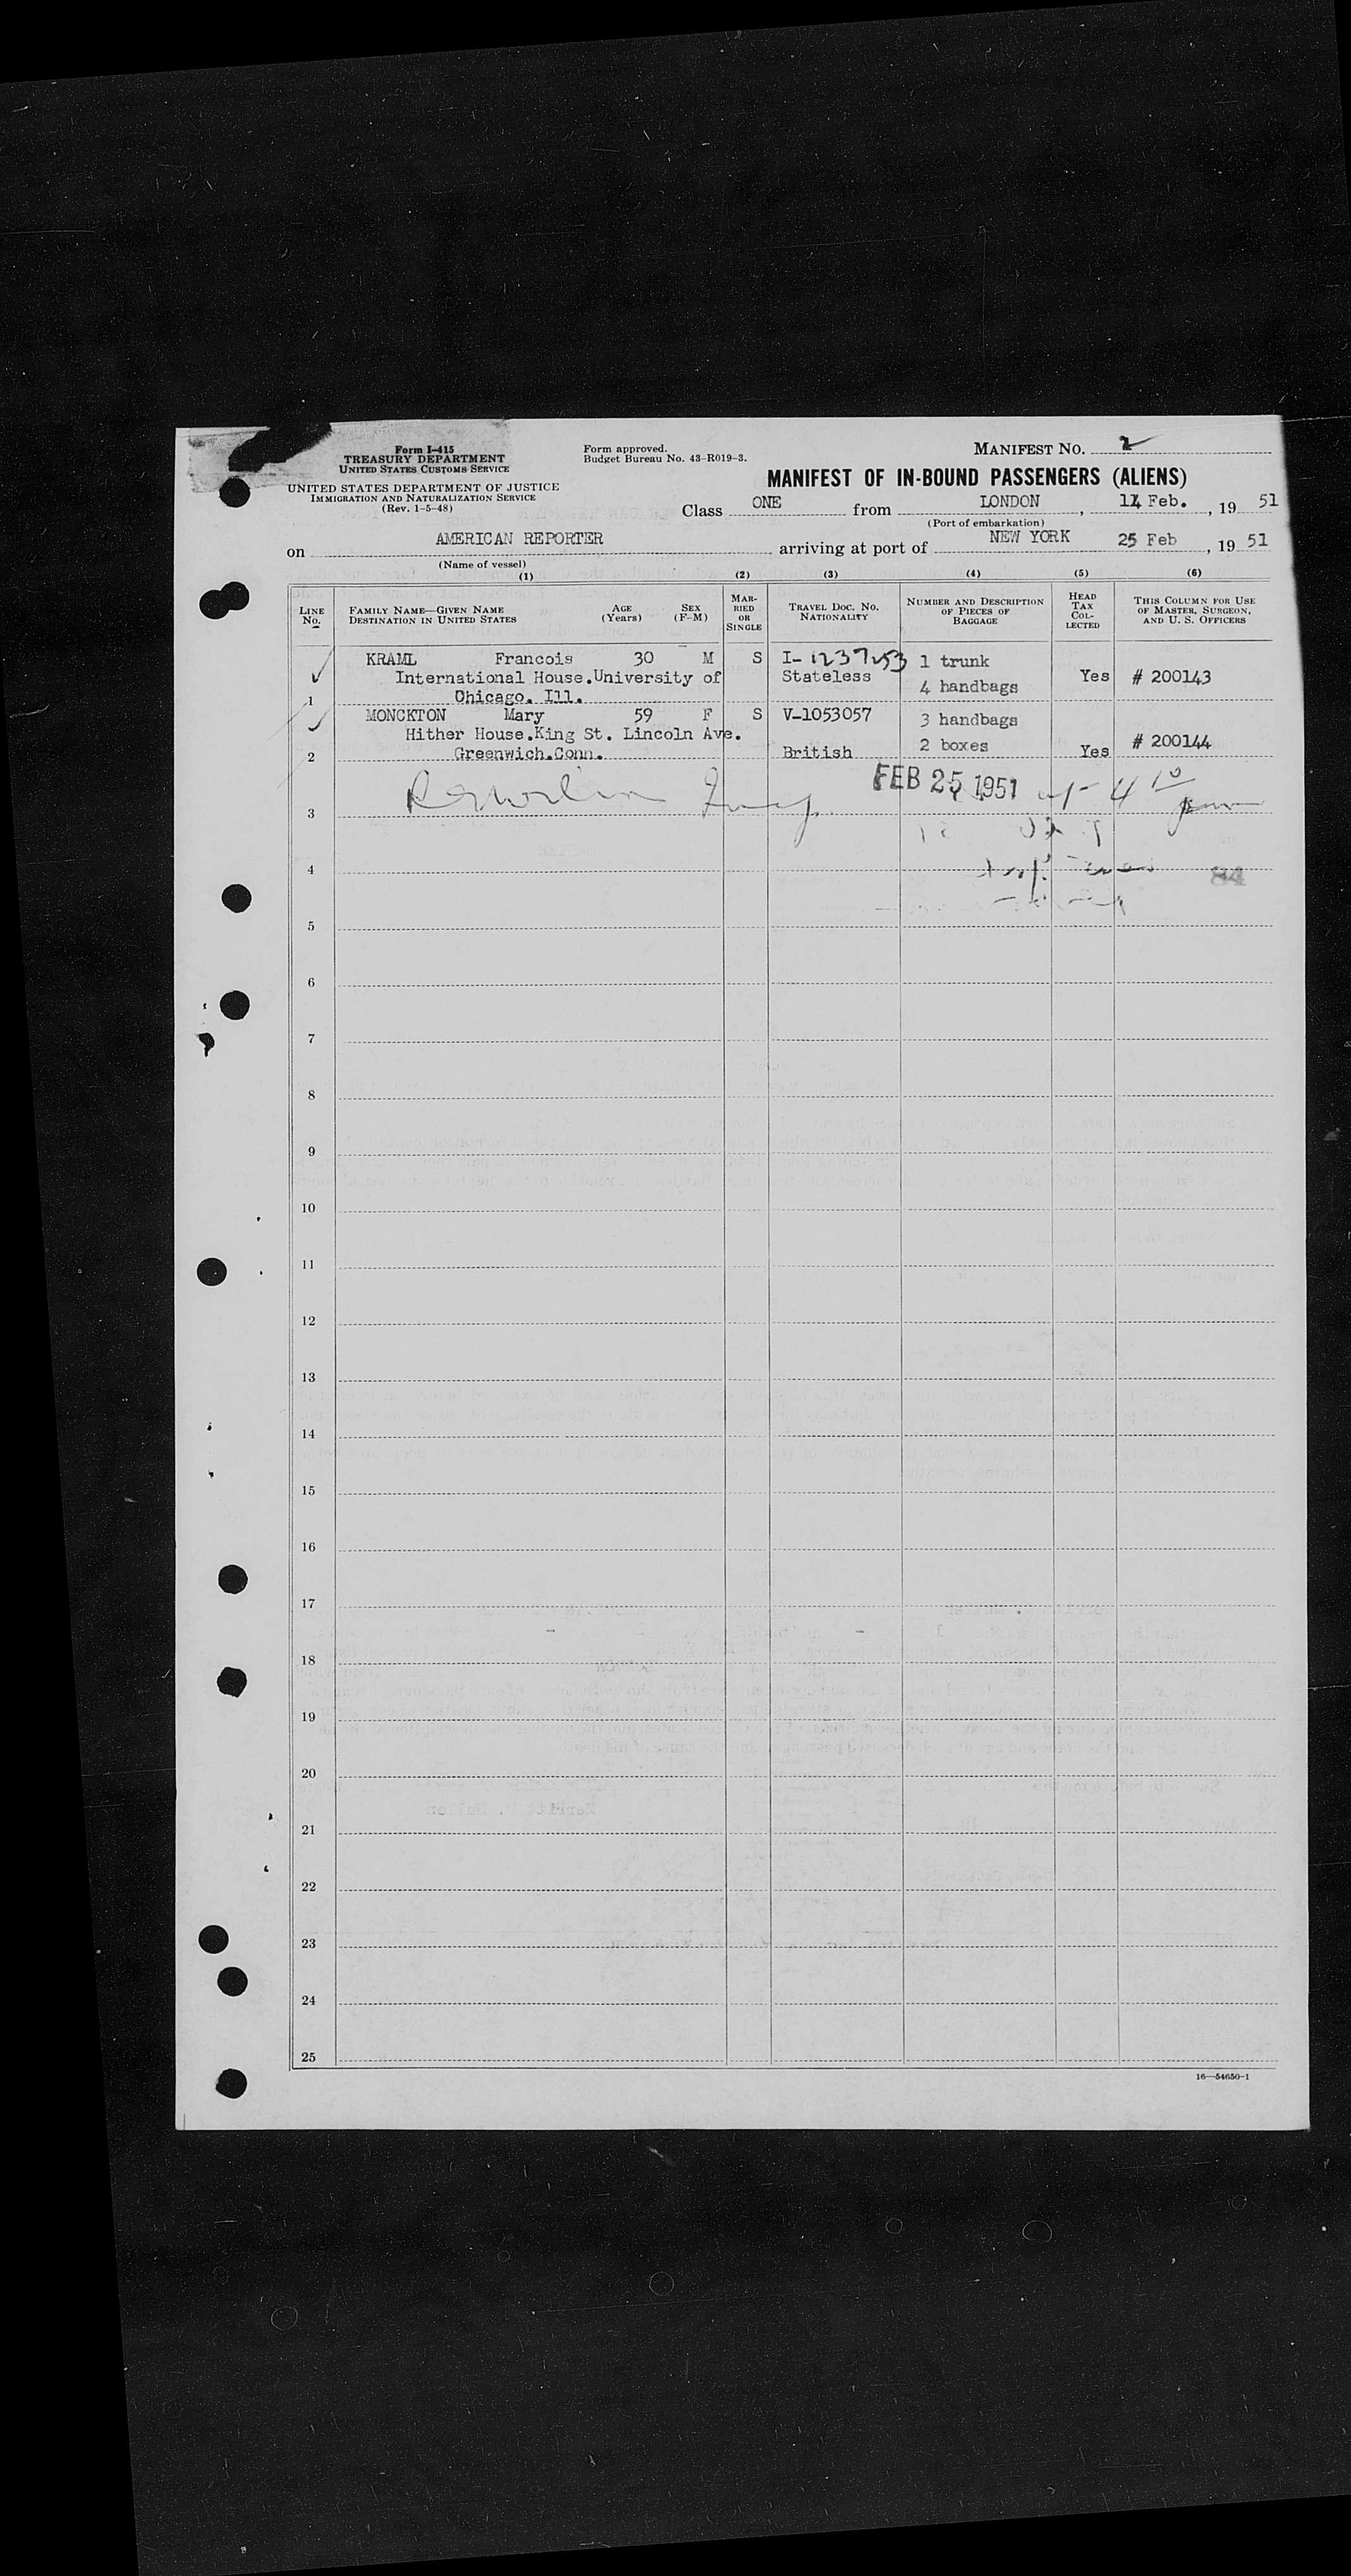 Form I-415
TREASURY DEPARTMENT
UNITED STATES CUSTOMS SERVICE
UNITED STATES DEPARTMENT OF JUSTICE
IMMIGRATION AND NATURALIZATION SERVICE
(Rev. 1-5-48)
Form approved.
Budget Bureau No. 43-R019-3.
MANIFEST NO. 2
MANIFEST OF IN-BOUND PASSENGERS (ALIENS)
Class ONE from LONDON, 14 Feb., 19 51
(Port of embarkation)
on AMERICAN REPORTER arriving at port of NEW YORK 25 Feb, 19 51
(Name of vessel)
(1) (2) (3) (4) (5) (6)
LINE No. FAMILY NAME—GIVEN NAME DESTINATION IN UNITED STATES AGE (Years) SEX (F-M) MARRIED OR SINGLE TRAVEL DOC. NO. NATIONALITY NUMBER AND DESCRIPTION OF PIECES OF BAGGAGE HEAD TAX COLLECTED THIS COLUMN FOR USE OF MASTER, SURGEON, AND U. S. OFFICERS
KRAML Francois 30 M S I-1237253 1 trunk
International House.University of Stateless 4 handbags Yes # 200143
1 Chicago. Ill.
MONCKTON Mary 59 F S V-1053057 3 handbags
Hither House.King St. Lincoln Ave. 2 boxes # 200144
2 Greenwich.Conn. British Yes
FEB 25 1951
3
4 84
5
6
7
8
9
10
11
12
13
14
15
16
17
18
19
20
21
22
23
24
25
16—54650-1